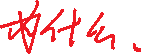 为什么、